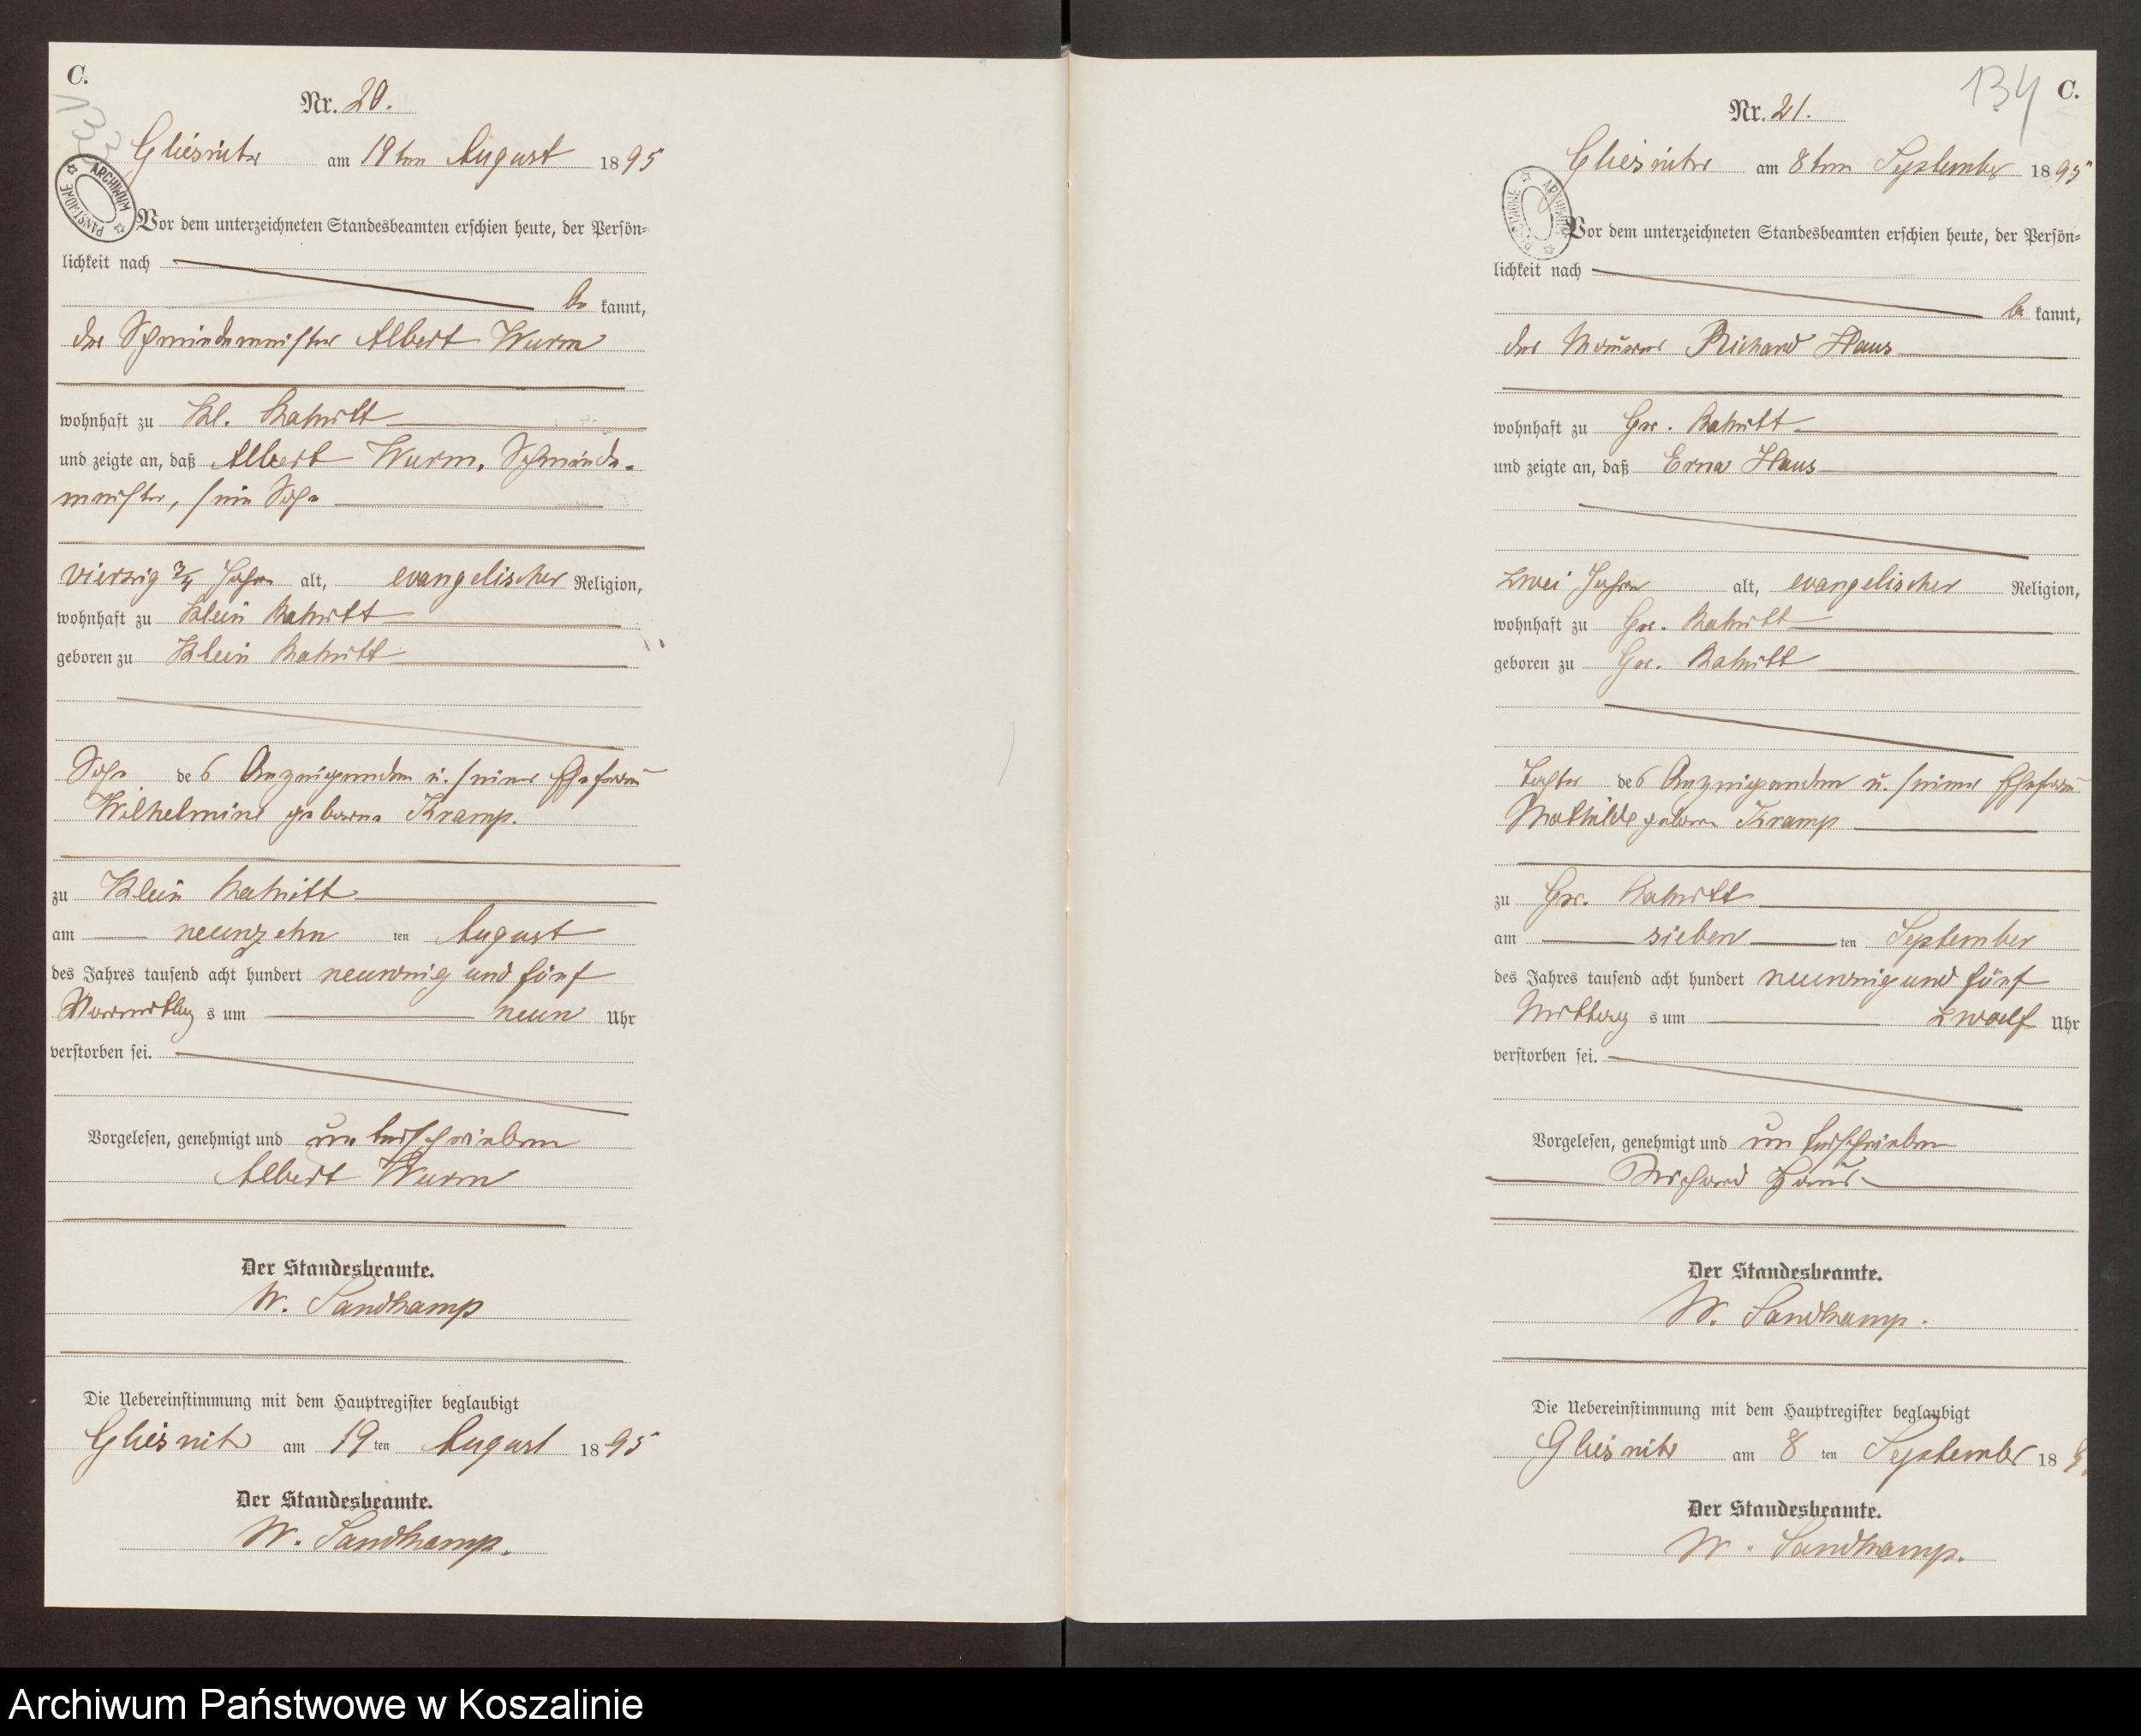 C.
Nr. 20.
133
Gliesnitz am 19ten August 1895
ARCHIWUM PAŃSTWOWE
Vor dem unterzeichneten Standesbeamten erschien heute, der Persön-
lichkeit nach
be kannt,
der Schmiedemeister Albert Wurm
wohnhaft zu Kl. Rakitt
und zeigte an, daß Albert Wurm, Schmiede-
meister, sein Sohn
vierzig ¾ Jahre alt, evangelischer Religion,
wohnhaft zu Klein Rakitt
geboren zu Klein Rakitt
Sohn des Anzeigenden u. seiner Ehefrau
Wilhelmine geborne Kramp.
zu Klein Rakitt
am neunzehn ten August
des Jahres tausend acht hundert neunzig und fünf
Vormittag s um neun Uhr
verstorben sei.
Vorgelesen, genehmigt und unterschrieben
Albert Wurm
Der Standesbeamte.
W. Sandkamp
Die Uebereinstimmung mit dem Hauptregister beglaubigt
Gliesnitz am 19 ten August 1895
Der Standesbeamte.
W. Sandkamp.
134 C.
Nr. 21.
Gliesnitz am 8ten September 1895
ARCHIWUM PAŃSTWOWE
Vor dem unterzeichneten Standesbeamten erschien heute, der Persön-
lichkeit nach
be kannt,
der Maurer Richard Haus
wohnhaft zu Gr. Rakitt
und zeigte an, daß Erna Haus
zwei Jahre alt, evangelischer Religion,
wohnhaft zu Gr. Rakitt
geboren zu Gr. Rakitt
Tochter des Anzeigenden u. seiner Ehefrau
Mathilde geborne Kramp
zu Gr. Rakitt
am sieben ten September
des Jahres tausend acht hundert neunzig und fünf
Mittag s um zwoelf Uhr
verstorben sei.
Vorgelesen, genehmigt und unterschrieben
Richard Haus
Der Standesbeamte.
W. Sandkamp.
Die Uebereinstimmung mit dem Hauptregister beglaubigt
Gliesnitz am 8 ten September 189
Der Standesbeamte.
W. Sandkamp.
Archiwum Państwowe w Koszalinie